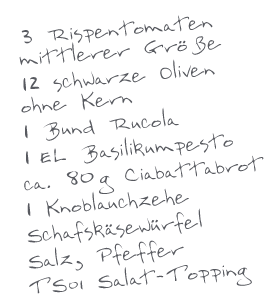 3 Rispentomaten
mittlerer Größe
12 schwarze Oliven
ohne Kern
1 Bund Rucola
1 EL Basilikumpesto
ca. 80 g Ciabattabrot
1 Knoblauchzehe
Schafskäsewürfel
Salz, Pfeffer
TS01 Salat-Topping